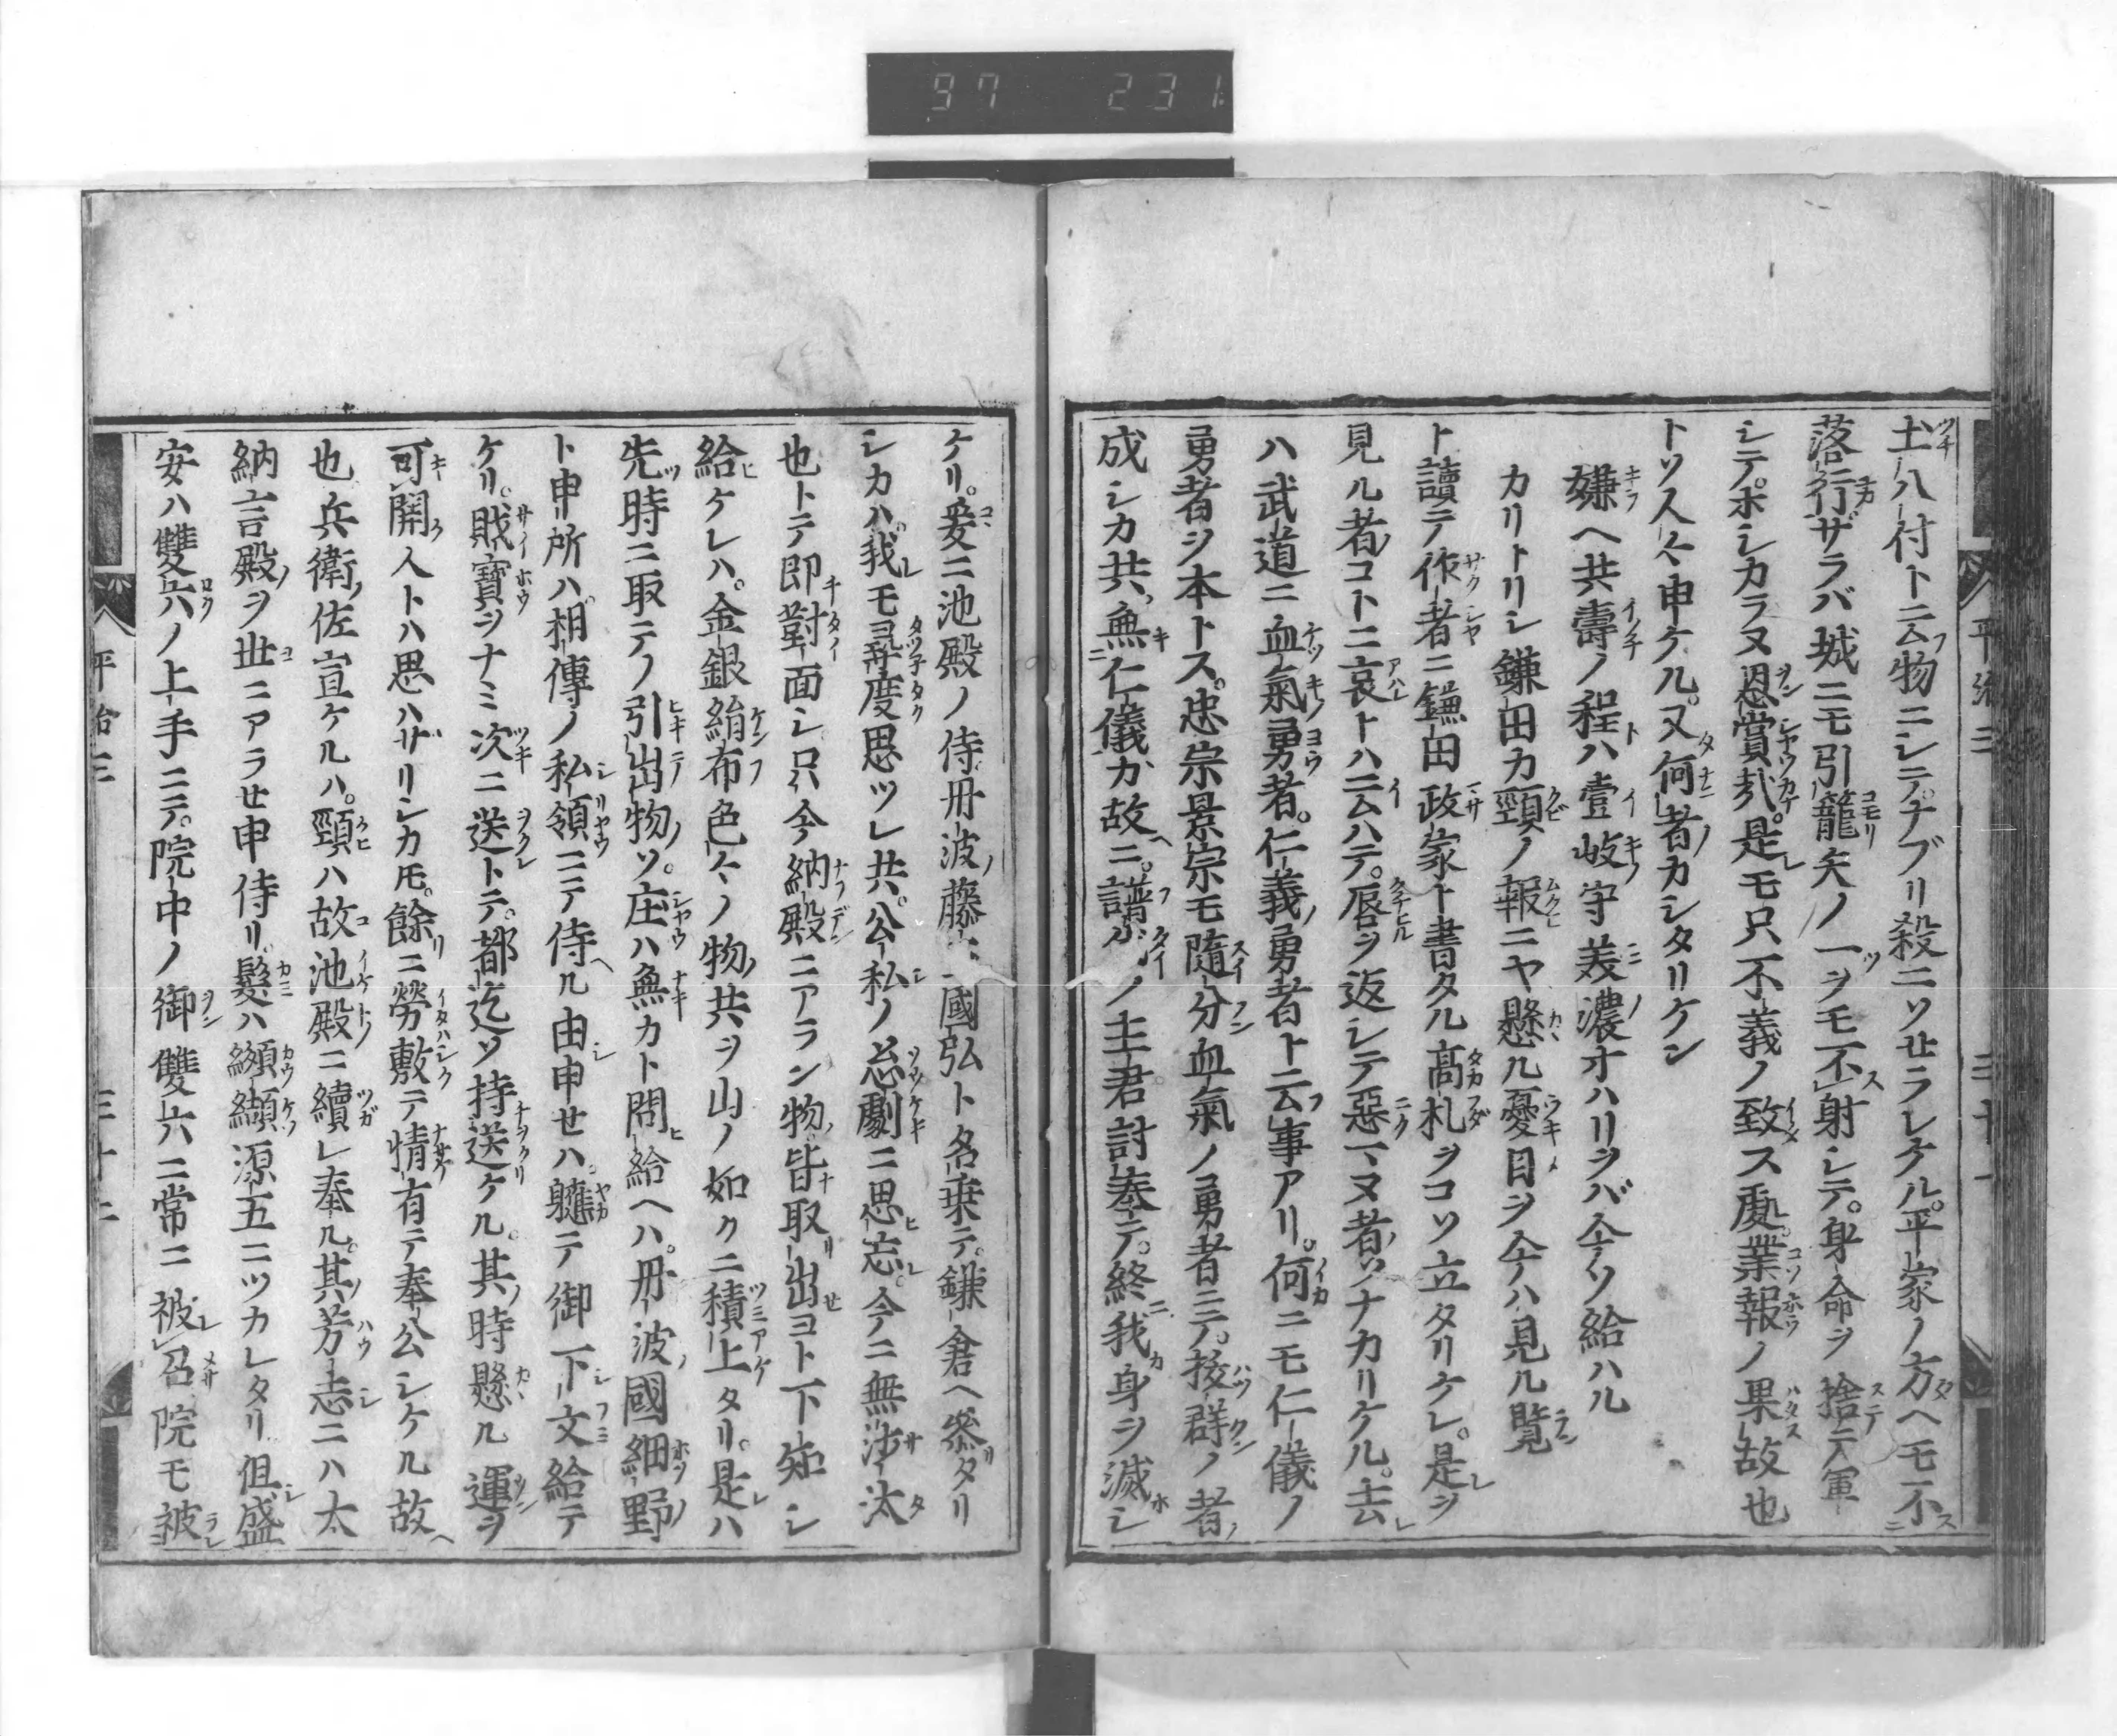 97 231
土八付ト云物ニシテ。ナブリ殺ニソせラレケル。平家ノ方ヘモ不
落行ザラバ城ニモ引籠矢ノ一ヲモ不射シテ。身命ヲ捨テ軍
シテ。ホシカラヌ恩賞哉。是モ只不義ノ致ス處。業報ノ果故也
トソ人々申ケル。又何者カシタリケン
嫌ヘ共壽ノ程ハ壹岐守美濃オハリヲバ今ソ給ハル
カリトリシ鎌田カ頸ノ報ニヤ懸ル憂目ヲ今ハ見ル覽
ト讀テ作者ニ鎌田政家ト書タル高札ヲコソ立タリケレ。是ヲ
見ル者コトニ哀トハ云ハテ。唇ヲ返シテ惡マヌ者ソナカリケル。去レ
ハ武道ニ血氣勇者。仁義勇者ト云事アリ。何ニモ仁儀ノ
勇者ヲ本トス。忠宗景宗モ隨分血氣ノ勇者ニテ。拔群ノ者ノ
成シカ共。無仁儀カ故ニ。譜代ノ主君討奉テ。終我身ヲ滅シ
平治三 三十一
ケリ。爰ニ池殿ノ侍丹波藤三國弘ト名乗テ。鎌倉ヘ參タリ
シカハ。我モ尋度思ツレ共。公私ノ怱劇ニ思忘。今ニ無沙汰
也トテ即對面シ只今納殿ニアラン物皆取出せヨト下知シ
給ケレハ。金銀絹布色々ノ物共ヲ山ノ如クニ積上タリ。是ハ
先時ニ取テノ引出物ソ。庄ハ無カト問給ヘハ。丹波國細野
ト申所ハ。相傳ノ私領ニテ侍ル由申せハ。軈テ御下文給テ
ケリ。賎寶ヲナミ次ニ送トテ。都迄ソ持送ケル。其時懸ル運ヲ
可開人トハ思ハザリシカ𪜈。餘ニ勞敷テ情有テ奉公シケル故
也兵衛佐宣ケルハ。頸ハ故池殿ニ續レ奉ル。其芳志ニハ大
納言殿ヲ世ニアラせ申侍リ。髮ハ纐纈源五ニツカレタリ但盛
安ハ雙六ノ上手ニテ。院中ノ御雙六ニ常ニ被召院モ被
平治三 三十二